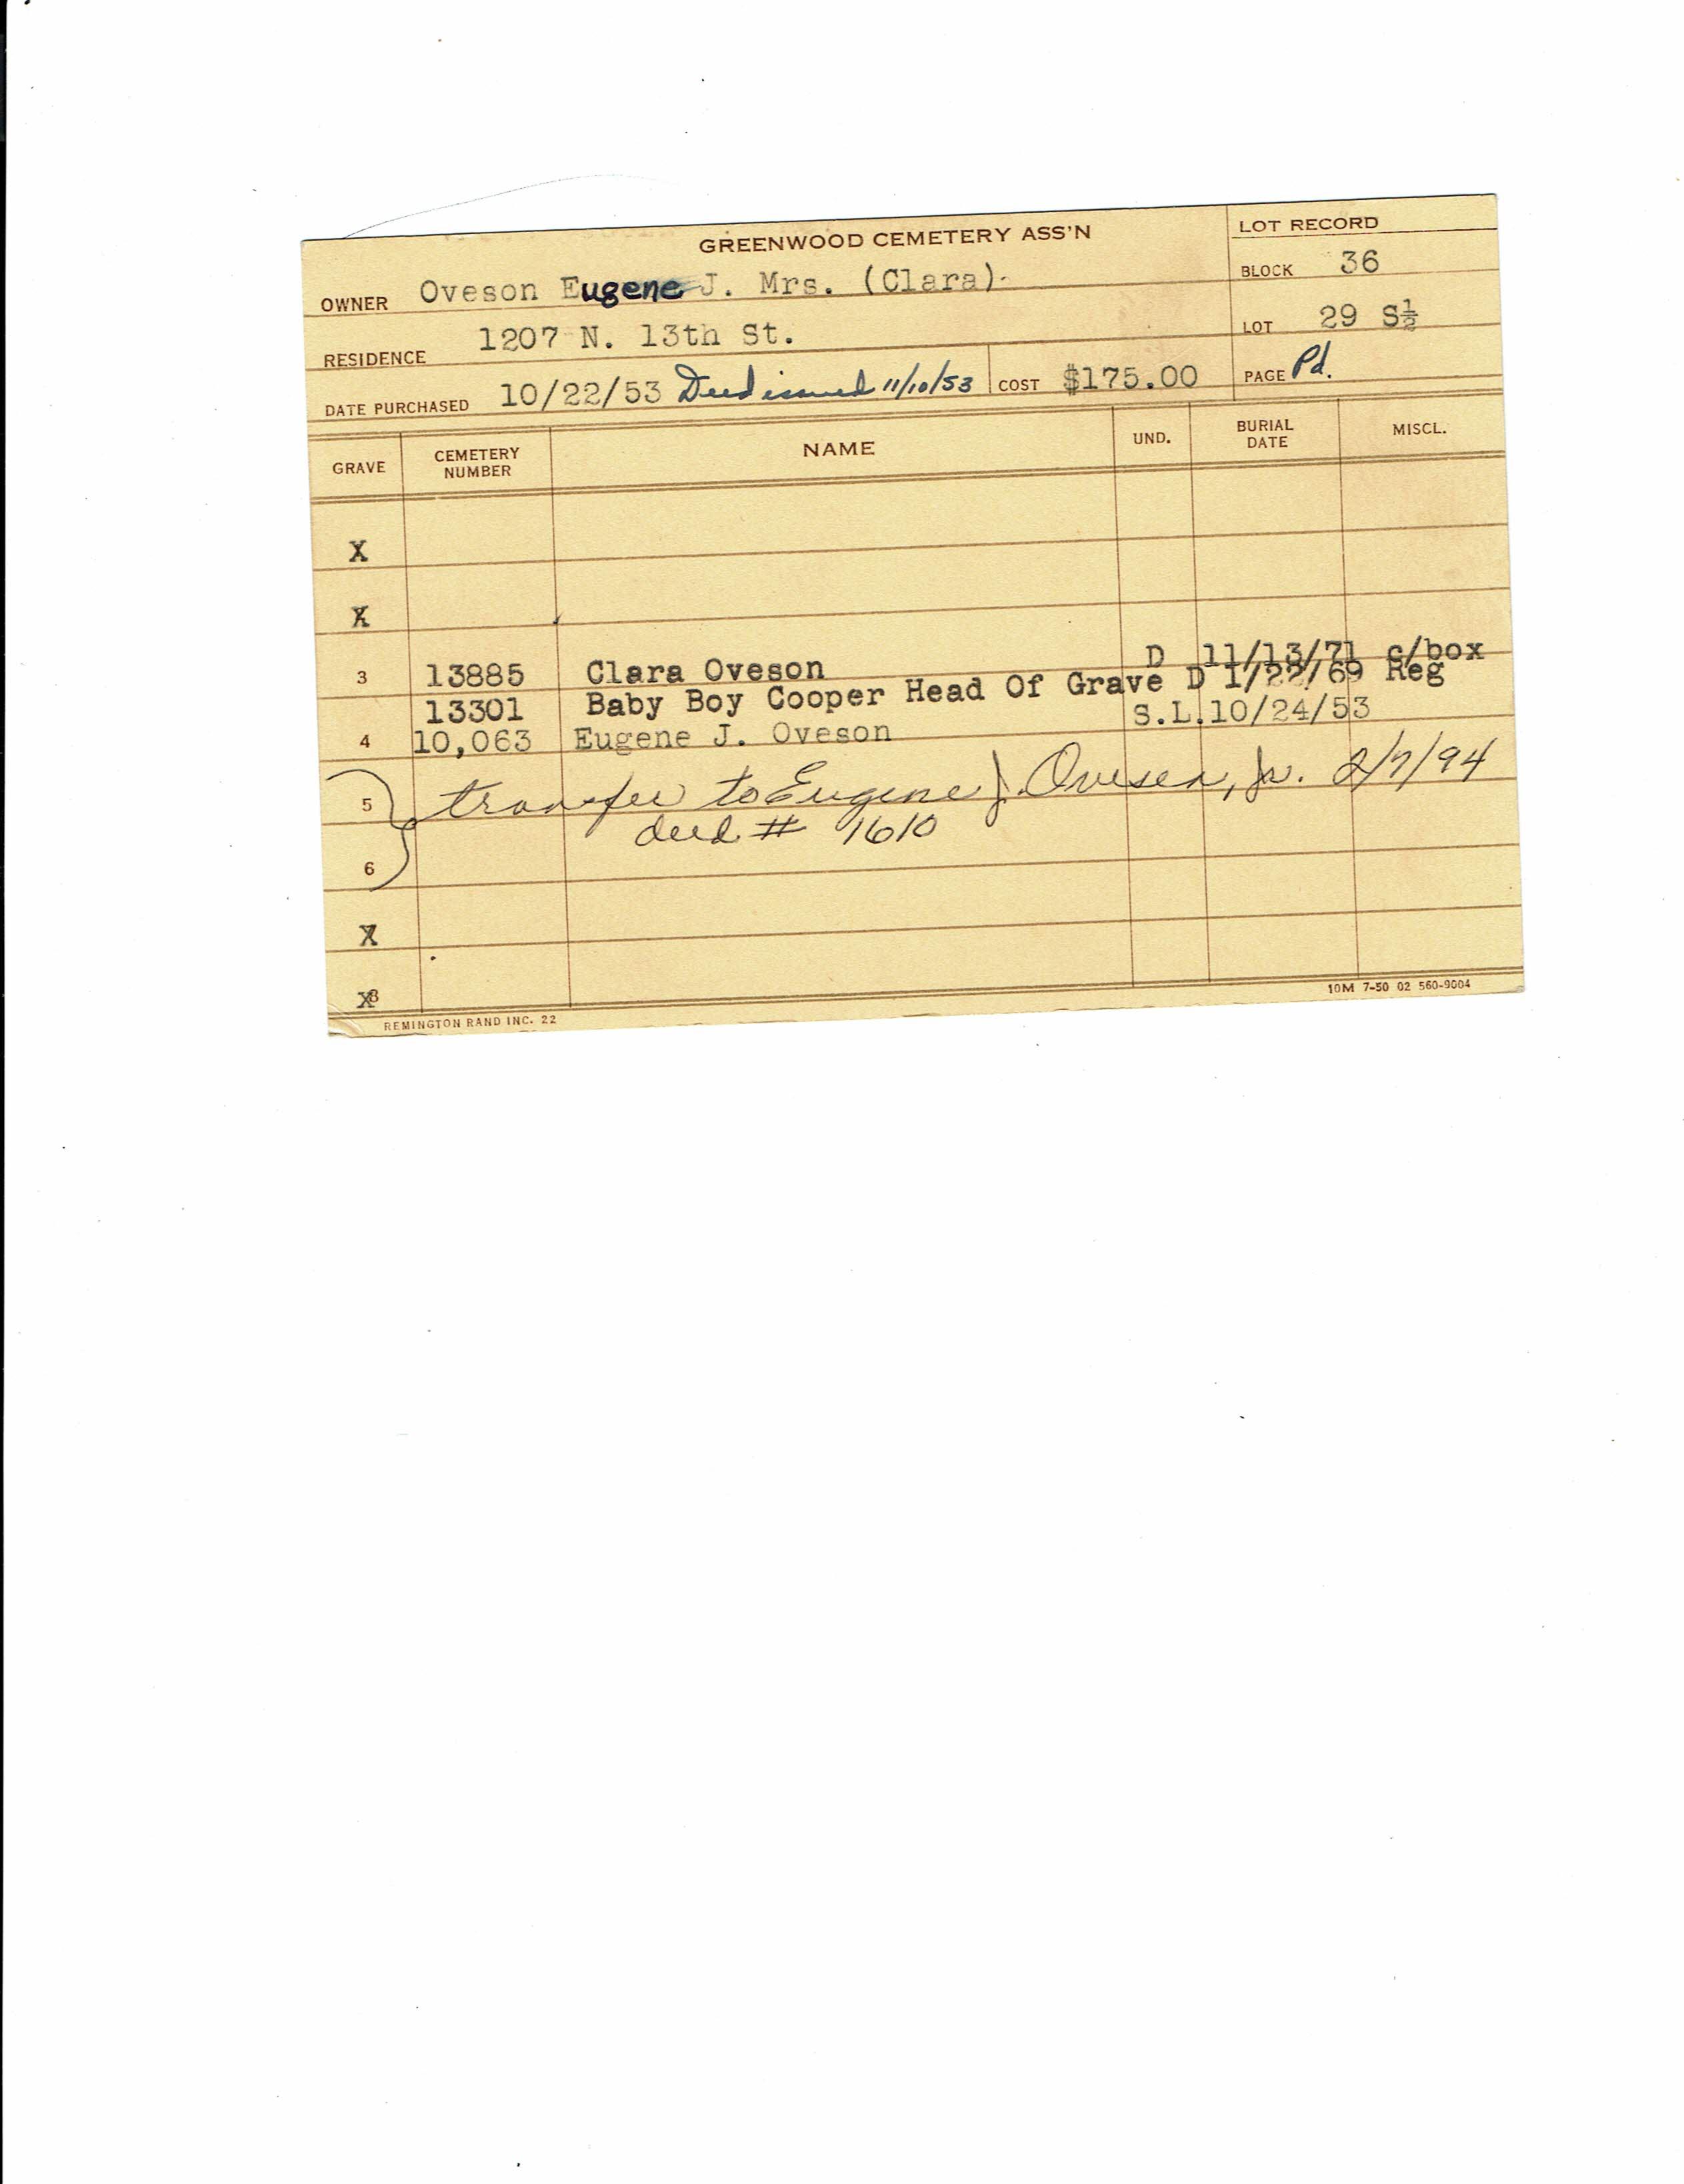 GREENWOOD CEMETERY ASS'N
LOT RECORD
OWNER Oveson Eugene J. Mrs. (Clara)
BLOCK 36
RESIDENCE 1207 N. 13th St.
LOT 29 S½
DATE PURCHASED 10/22/53 Deed issued 11/10/53 COST $175.00 PAGE Pd.
GRAVE CEMETERY NUMBER NAME UND. BURIAL DATE MISCL.
X
X
3 13885 Clara Oveson D 11/13/71 c/box
13301 Baby Boy Cooper Head Of Grave D 1/22/69 Reg
4 10,063 Eugene J. Oveson S.L. 10/24/53
5 transfer to Eugene J. Oveson, Jr. 2/7/94
deed # 1610
6
X
X8
REMINGTON RAND INC. 22
10M 7-50 02 560-9004